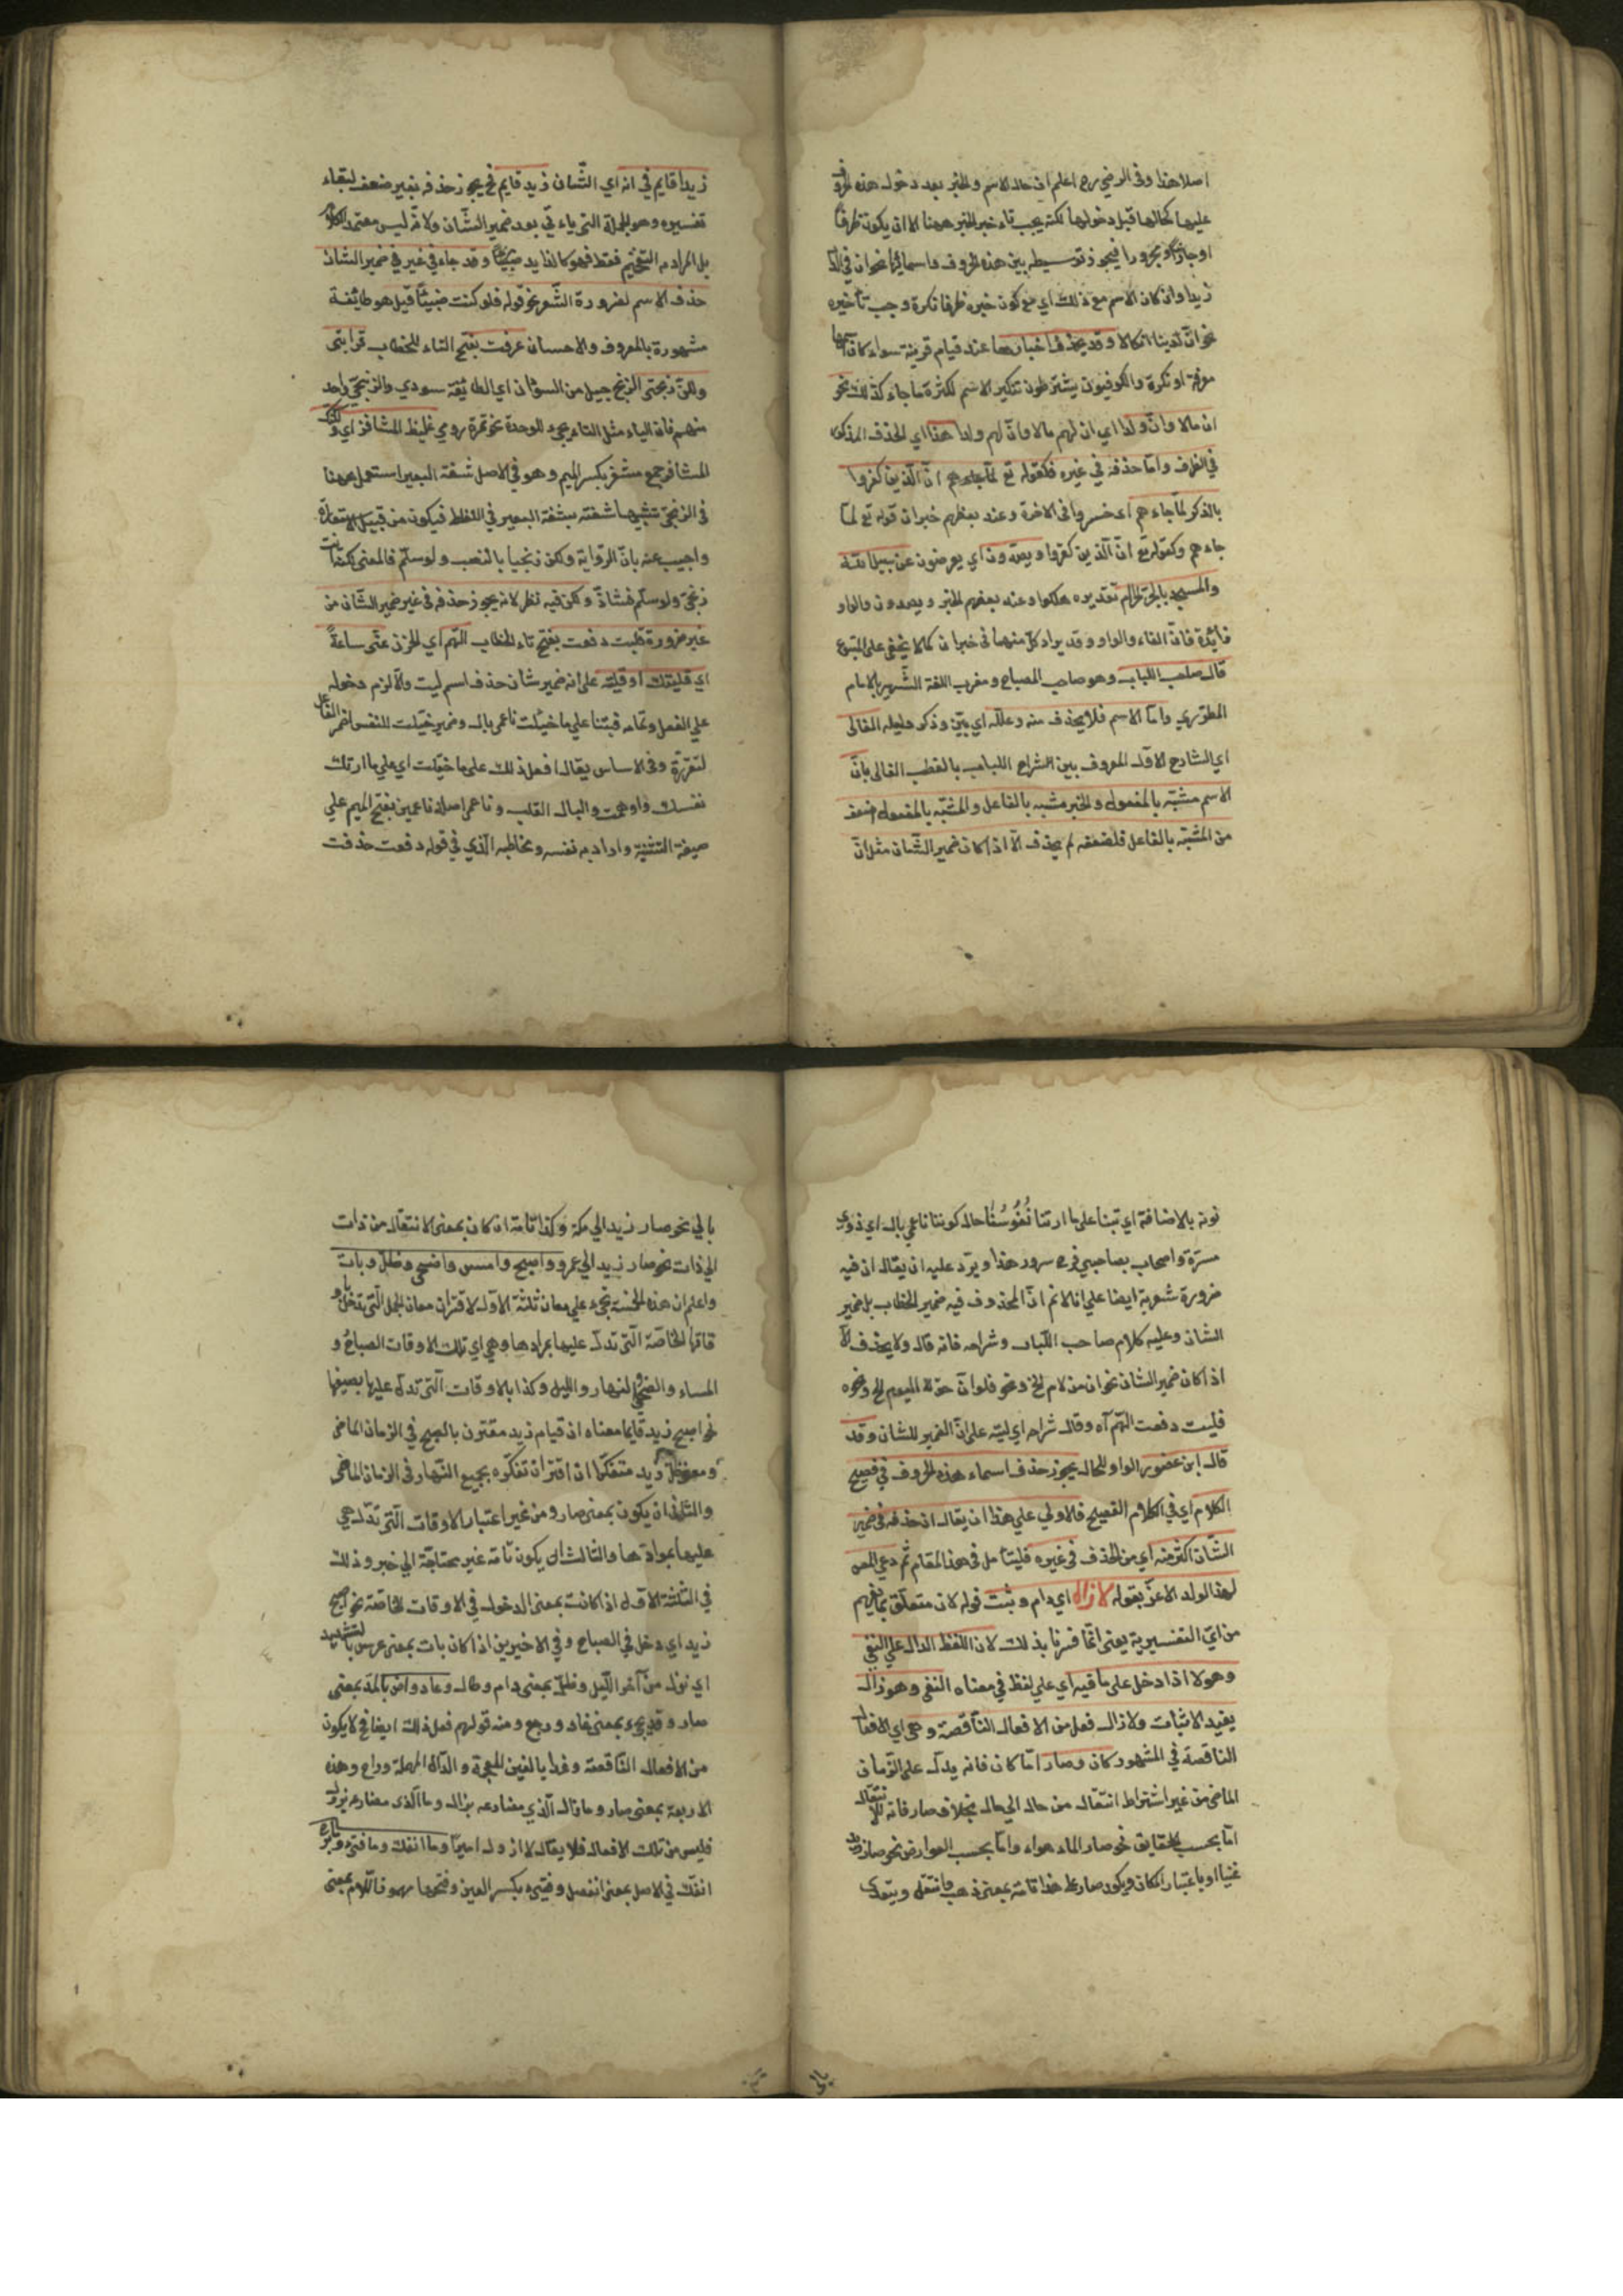 اصلا هذا وفى الرضي رح اعلم ان حال الاسم والخبر بعد دخول هذه الحروف
عليها كحالها قبل دخولها لكنه يجب تاخير الخبر ههنا الا ان يكون ظرفا
او جارا ومجرورا فيجوز توسيطه بين هذه الحروف واسمائها نحو ان في الدار
زيدا وان كان الاسم مع ذلك اي مع كون خبره ظرفا نكرة وجب تأخيره
نحو انّ لدينا انكالا وقد يحذف اخبارها عند قيام قرينة سواء كان اسمها
معرفة او نكرة والكوفيون يشترطون تنكير الاسم لكثرة ما جاء كذلك نحو
ان مالا وانّ ولدا اي ان لهم مالا وانّ لهم ولدا هذا اي الحذف المذكور
في الظرف وامّا حذفه في غيره فكقوله تع لمّا جاءهم انّ الذين كفروا
بالذكر لمّا جاءهم اى خسروا فى الاخرة وعند بعضهم خبر ان قوله تع لمّا
جاءهم وكقوله تع انّ الّذين كفروا ويصدّون اي يعرضون عن سبيل الله
والمسجد بالجرّ الحرام تقديره هلكوا وعند بعضهم الخبر ويصدون والواو
زائدة فانّ الفاء والواو وقد يزاد كل منهما فى خبر ان كما لا يخفى على المتتبع
قال صاحب اللباب وهو صاحب المصباح ومغرب اللغة الشّهير بالامام
المطرّزي وامّا الاسم فلا يحذف منه وعلله اي بيّن وذكر دليله الفالى
اي الشارح الاوّل المعروف بين الشراح اللباب بالقطب الفالى بانّ
الاسم مشبّه بالمفعول والخبر مشبه بالفاعل والمشبّه بالمفعول اضعف
من المشبّه بالفاعل فلضعفه لم يحذف الّا اذا كان ضمير الشّان مثل انّ
زيدا قايم في انه اي الشّان زيد قايم فح يجوز حذفه بغير ضعف لبقاء
تفسيره وهو الجملة التى ياءتي بعد ضمير الشّان ولانّه ليس معتمد الكلام
بل المراد به التفخيم فقط فهو كالزايد وقد جاء في غير ضمير الشان
حذف الاسم لضرورة الشّعر نحو قوله فلو كنت ضبيّاً قيل هو طائفة
مشهورة بالمعروف والاحسان عرفت بفتح التاء للخطاب قرابتى
ولكنّ زنجى الزنج جيل من السودان اي الطائفة سودي والزنجيّ واحد
منهم فان الياء مثل التاء يجيء للوحدة نحو تمرة رومي غليظ المشافر اي ولكنك
المشافر جمع مشفر بكسر الميم وهو في الاصل شفة البعير استعمل ههنا
فى الزنجىّ تشبيها شفته بشفة البعير في الغلظ فيكون من قبيل الاستعارة
واجيب عنه بانّ الرّواية ولكن زنجيا بالنصب ولو سلّم فالمعنى لكنك انت
زنجىّ ولو سلّم فشاذّ ولكن فيه نظر لانه يجوز حذفه فى غير ضمير الشّان من
غير ضرورة فليت دفعت بفتح تاء الخطاب الهّم اي الحزن عنّى ساعةً
اي فليتك او فليته على انه ضمير شان حذف اسم ليت والّا لزم دخوله
على الفعل وتمامه فبتنا علي ما خيّلت ناعمى بال وضمير خيّلت للنفس اضمر الفاعل
لتقرره وفى الاساس يقال افعل ذلك على ما خيّلت اي علي ما ارتك
نفسك واوهمت والبال القلب وناعمى اصله ناعمين بفتح الميم علي
صيغة التثنية واراد به نفسه ومخاطبه الّذي في قوله دفعت حذفت
نونه بالاضافة اي تبتنا على ما ارتنا نُفُوسُنَا حال كوننا ناعمي بال اي ذوي
مسرّة واصحاب بصاحبي فرح سرور هذا ويرد عليه ان يقال ان فيه
ضرورة شعرية ايضا علي انا لانم انّ المحذوف فيه ضمير الخطاب بل ضمير
الشان وعليه كلام صاحب اللّباب وشراحه فانه قال ولا يحذف الّا
اذا كان ضمير الشان نحو ان من لام الخ ونحو فلو انّ حقّ اليوم الخ ونحوه
فليت دفعت الهّم آه وقال شراحه اي ليته على انّ الضمير للشان وقد
قال ابن عصفور الواو للحال يجوز حذف اسماء هذه الحروف في فصيح
الكلام اي في الكلام الفصيح فالاولي علي هذا ان يقال ان حذفه فى ضمير
الشّان اكثر منه اي من الحذف فى غيره فليتأمل في هذا المقام ثم دعي المص
لهذا الولد الاعزّ بقوله لا زال اي دام وثبت قوله لان متعلّق بما يفهم
من ايّ التفسيرية يعنى انّما فسرنا بذلك لان اللفظ الدال علي النفي
وهو لا اذا دخل على ما فيه اي علي لفظ في معناه النفى وهو زال
يفيد الاثبات ولا زال فعل من الافعال النّاقصة وهي اي الافعال
الناقصة في المشهور كان وصار امّا كان فانه يدلّ على الزّمان
الماضى من غير اشتراط انتقال من حال الي حال بخلاف صار فانه للانتقال
امّا بحسب الحقايق نحو صار الماء هواء وامّا بحسب العوارض نحو صار زيد
غنيا او باعتبار المكان ويكون صار علي هذا تامة بمعنى ذهب وانتقل ويتعدى
بالي نحو صار زيد الي مكة وكذا تامة ان كان بمعنى الانتقال من ذات
الي ذات نحو صار زيد الي عمرو واصبح وامسى واضحى وظلّ وبات
واعلم ان هذه الخمسة تجيء علي معان ثلثة الاوّل لاقتران معان الجمل الّتى تدخل باو
قاتها الخاصّة الّتى تدلّ عليها بموادها وهي اي تلك الاوقات الصباحُ و
المساء والضحى والنهار والليل وكذا بالاوقات الّتى تدلّ عليها بصيغها
نحو اصبح زيد قايما معناه ان قيام زيد مقترن بالصبح في الزمان الماضى
ومعنى ظلّ زيد متفكّرا ان اقتران تفكّره بجميع النّهار فى الزمان الماضى
والثانى ان يكون بمعنى صار ومن غير اعتبار الاوقات الّتى تدّل هي
عليها بموادّها والثالث ان يكون تامّة غير محتاجة الي خبر وذلك
في الثلثة الاوّل اذا كانت بمعنى الدخول في الاوقات الخاصّة نحو اصبح
زيد اي دخل في الصباح وفي الاخيرين اذا كان بات بمعنى عرس بالتشديد
اي نزل من آخر اللّيل وظلّ بمعنى دام وطال وعاد وآض بالمدّ بمعنى
صار وقد يجيء بمعنى عاد ورجع ومنه قولهم فعل ذلك ايضا فح لا يكون
من الافعال النّاقصة وغدا بالغين المعجمة والدّال المهملة وراح وهذه
الاربعة بمعنى صار وما زال الّذي مضارعه يزال وما الّذى مضارعه يزول
فليس من تلك الافعال فلا يقال لا ازول اميرًا وما انفك وما فتىء وما برح
انفك في الاصل بمعنى انفصل وفتىء بكسر العين وفتحها مهموز اللام بمعنى